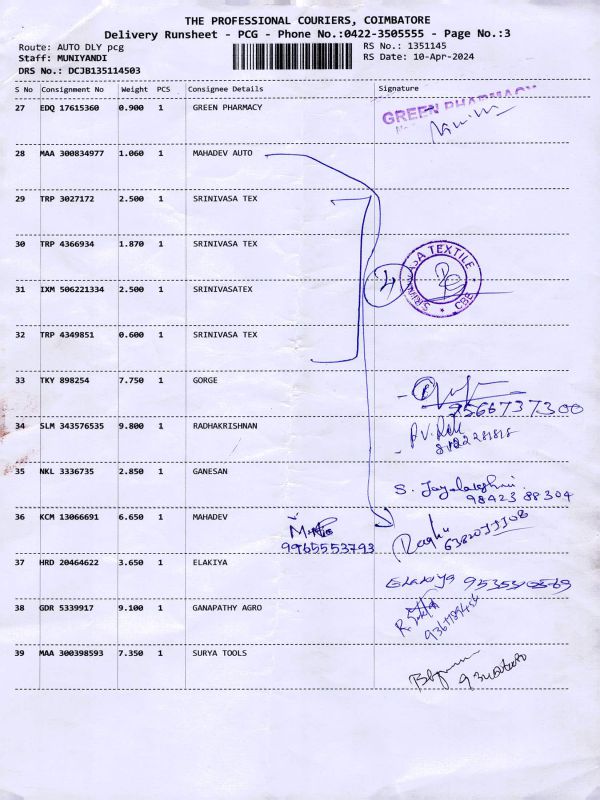 THE PROFESSIONAL COURIERS, COIMBATORE
Delivery Runsheet - PCG - Phone No.:0422-3505555 - Page No.:3
Route: AUTO DLY pcg
RS No.: 1351145
Staff: MUNIYANDI
RS Date: 10-Apr-2024
DRS No.: DCJB135114503
S No Consignment No Weight PCS Consignee Details Signature
27 EDQ 17615360 0.900 1 GREEN PHARMACY GREEN PHARMACY
28 MAA 300834977 1.060 1 MAHADEV AUTO
29 TRP 3027172 2.500 1 SRINIVASA TEX
30 TRP 4366934 1.870 1 SRINIVASA TEX
SRINIVASA TEXTILE CBE
31 IXM 506221334 2.500 1 SRINIVASATEX
32 TRP 4349851 0.600 1 SRINIVASA TEX
33 TKY 898254 7.750 1 GORGE
9566737300
34 SLM 343576535 9.800 1 RADHAKRISHNAN
35 NKL 3336735 2.850 1 GANESAN
S. Jayalakshmi
98423 88304
36 KCM 13066691 6.650 1 MAHADEV
9965553793
Raghu
37 HRD 20464622 3.650 1 ELAKIYA
Elakiya
38 GDR 5339917 9.100 1 GANAPATHY AGRO
39 MAA 300398593 7.350 1 SURYA TOOLS